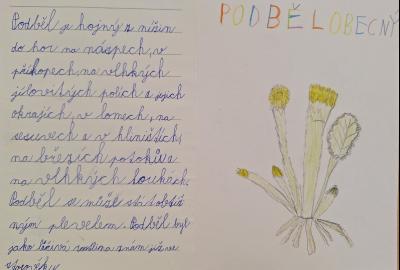 Podběl je hojný z nížin
do hor na náspech, v
příkopech, na vlhkých
jílovitých polích a jejich
okrajích, v lomech, na
sesuvech a v hliništích,
na březích potoků a
na vlhkých loukách.
Podběl se může stát obtíž
ným plevelem. Podběl byl
jako léčivá rostlina znám již ve
starověku
PODBĚL OBECNÝ